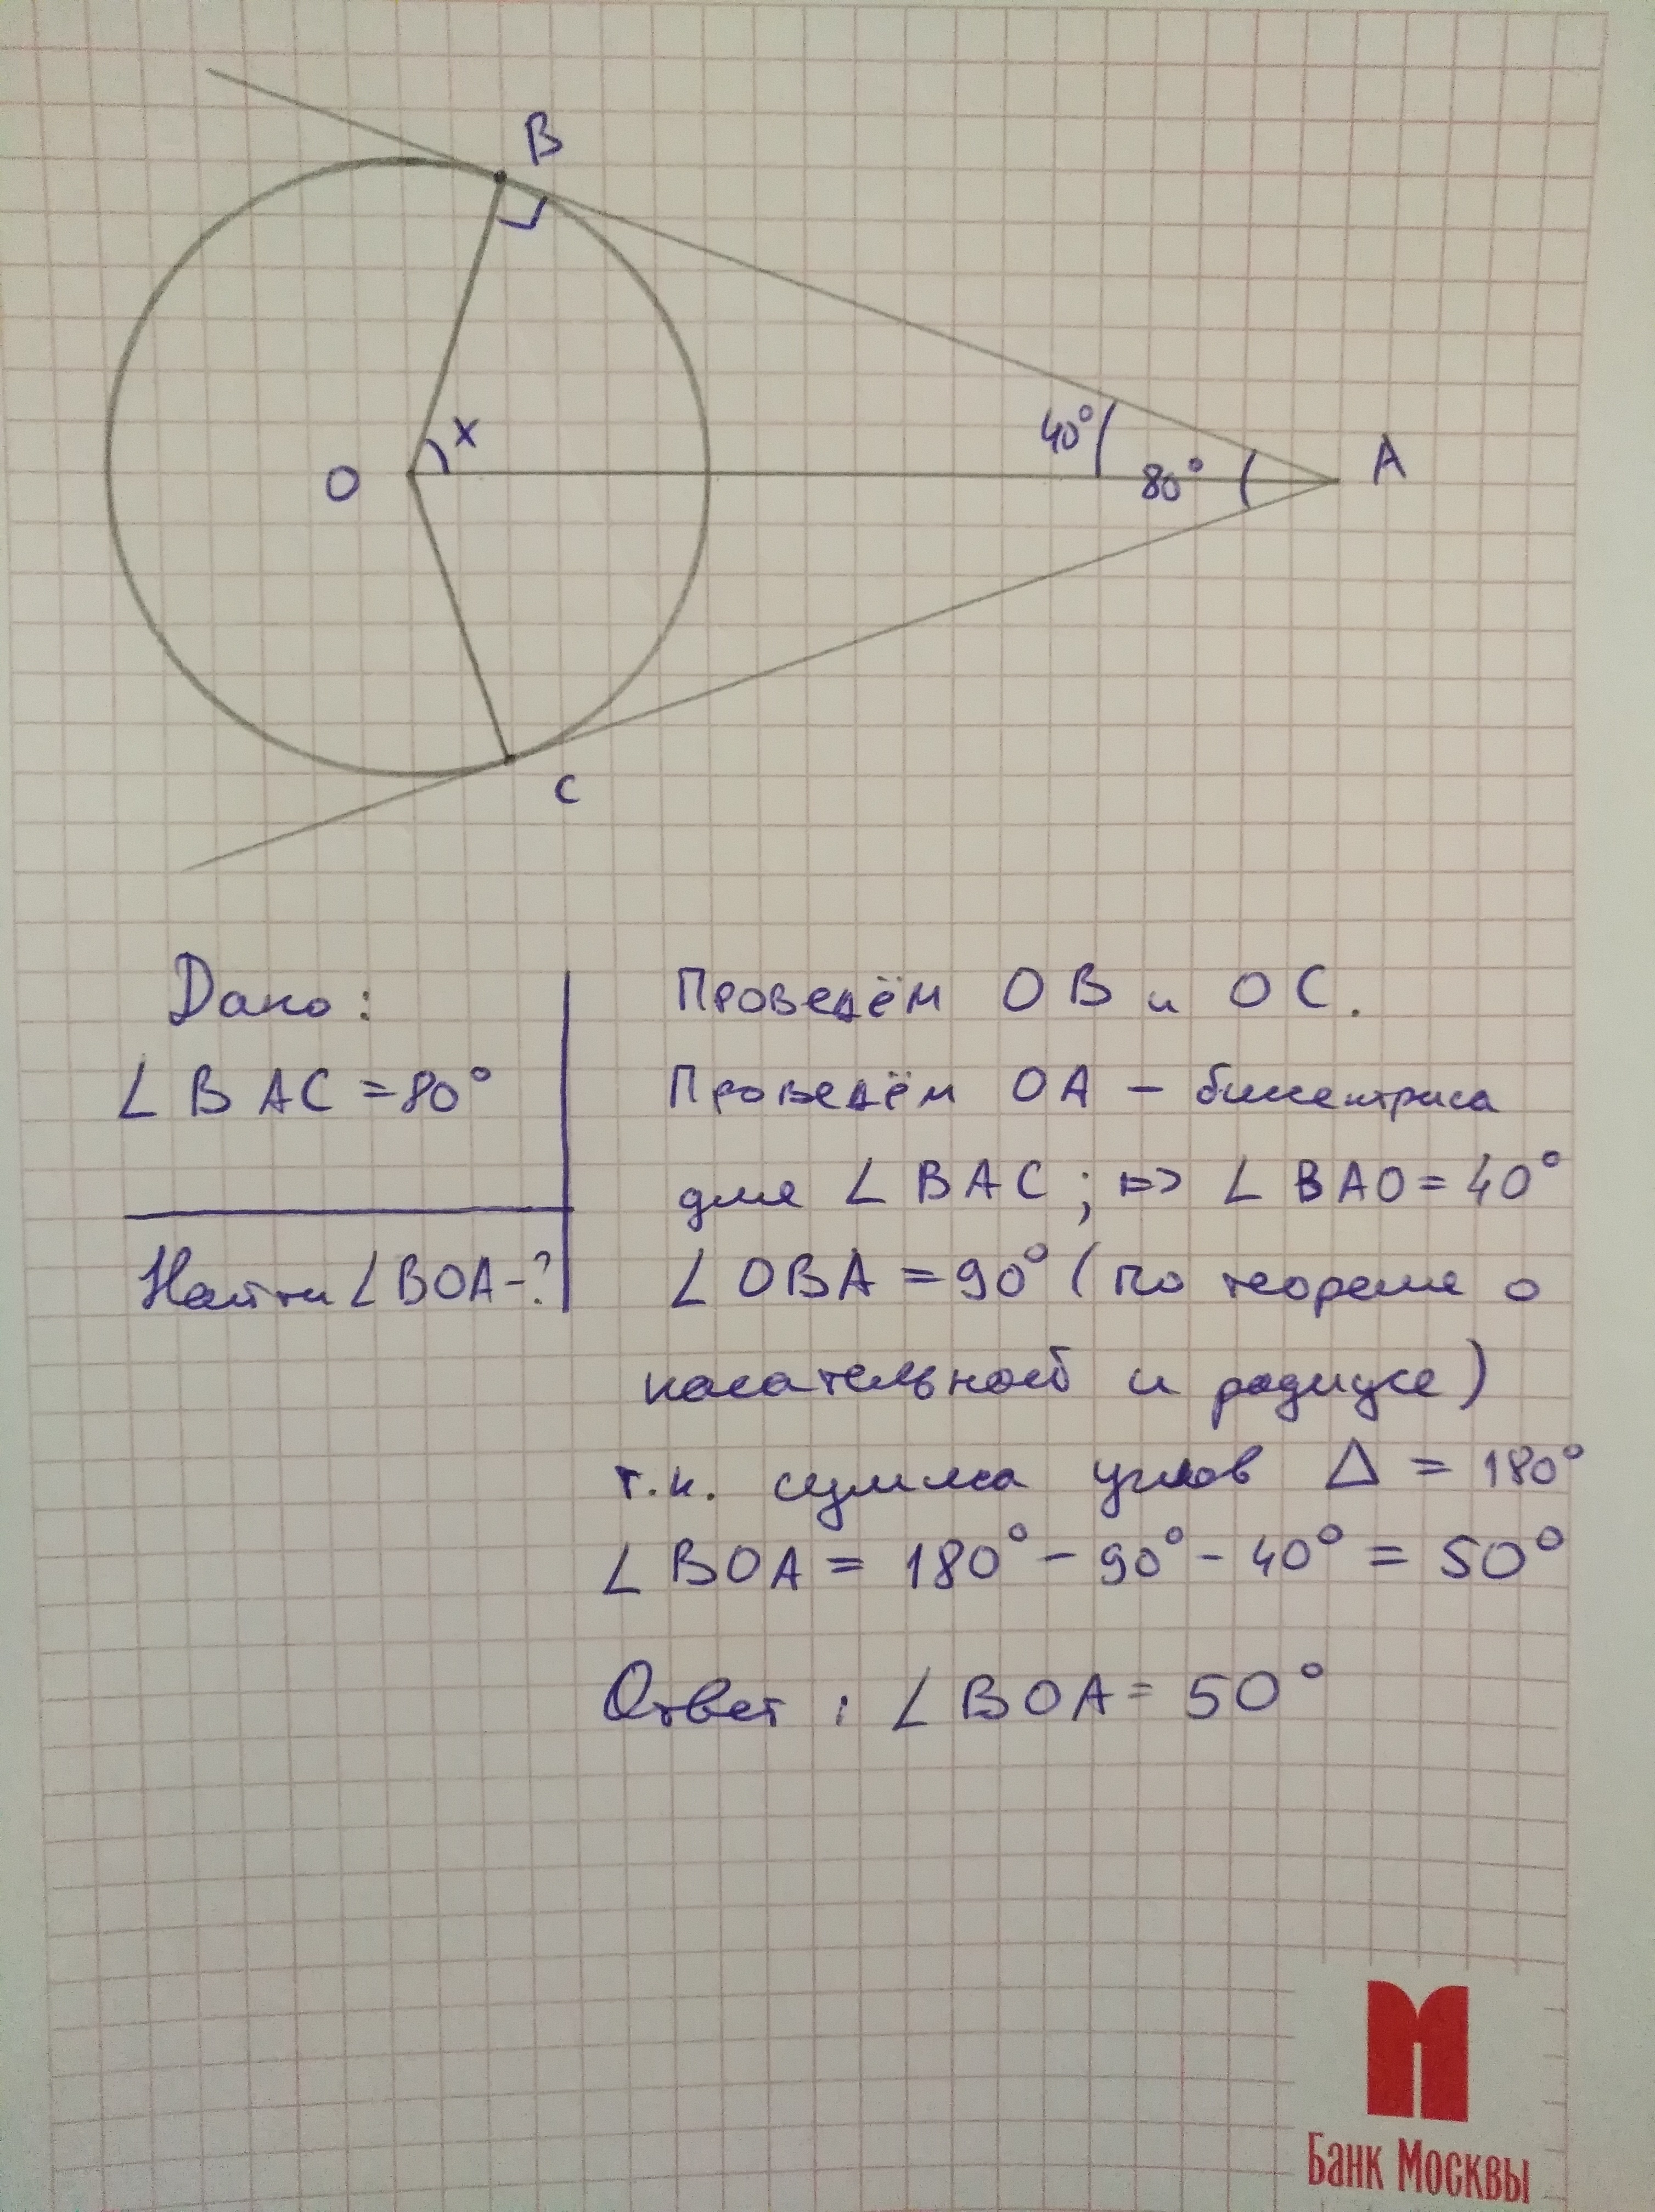 B
x
O
40°
80°
A
C
Дано:
∠ BAC = 80°
Найти ∠BOA-?
Проведём OB и OC.
Проведём OA – биссектриса
для ∠ BAC ; => ∠ BAO = 40°
∠ OBA = 90° (по теореме о
касательной и радиусе)
т.к. сумма углов Δ = 180°
∠ BOA = 180° - 90° - 40° = 50°
Ответ : ∠ BOA = 50°
Банк Москвы